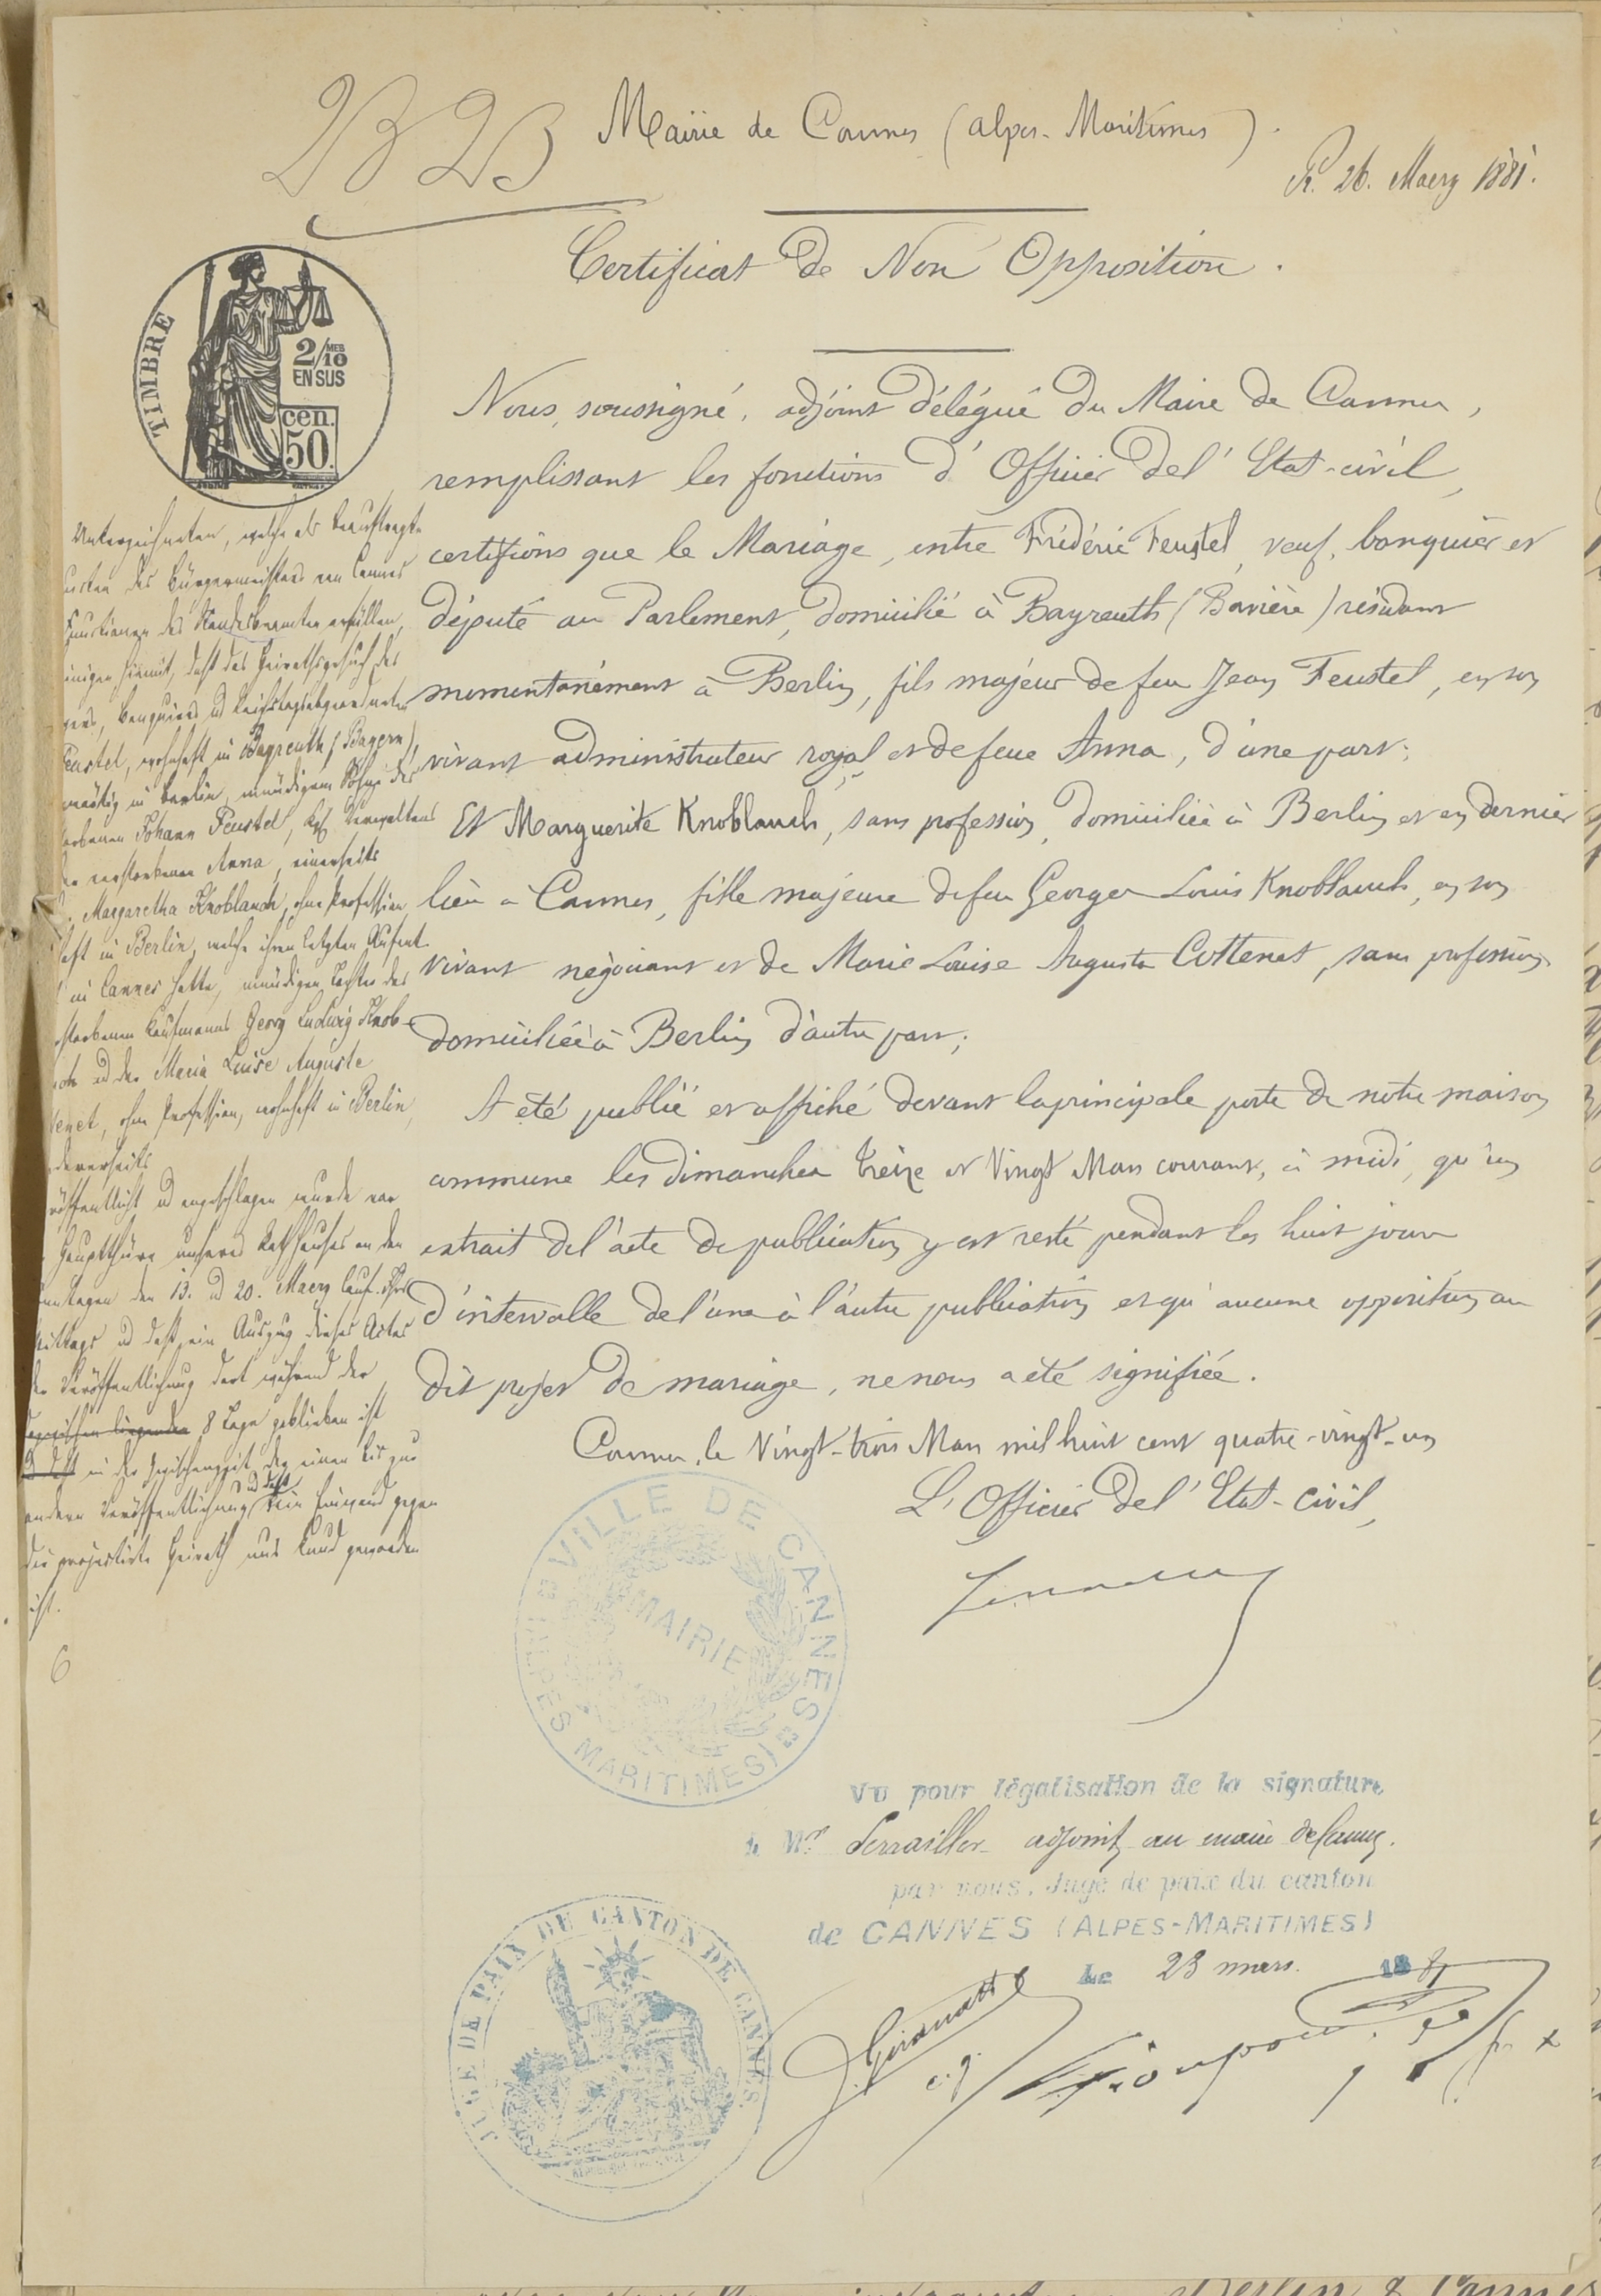 Mairie de Cannes (Alpes-Maritimes).
R. 26. Maerz 1881.
Certificat de Non Opposition.
TIMBRE
2/10 MES
EN SUS
cen.
50.
Nous, soussigné, adjoint délégué du Maire de Cannes,
remplissant les fonctions d'Officier de l'Etat-civil,
certifions que le Mariage, entre Frédéric Feustel, veuf, banquier et
député au Parlement, domicilié à Bayreuth (Bavière) résidant
momentanément à Berlin, fils majeur de feu Jean Feustel, en son
vivant administrateur royal et de feue Anna, d'une part;
Et Marguerite Knoblauch, sans profession, domiciliée à Berlin et en dernier
lieu à Cannes, fille majeure de feu Georges Louis Knoblauch, en son
vivant négociant et de Marie Louise Augusta Cottenet, sans profession
domiciliée à Berlin d'autre part;
A été publié et affiché devant la principale porte de notre maison
commune les dimanches treize et Vingt Mars courant, à midi, qu'un
extrait de l'acte de publication y est resté pendant les huit jours
d'intervalle de l'une à l'autre publication et qu'aucune opposition au
dit projet de mariage, ne nous a été signifiée.
Cannes, le Vingt-trois Mars mil huit cent quatre-vingt-un
L'Officier de l'Etat-civil,
Unterzeichneten, welche als beauftragte
des Bürgermeisters von Cannes
Funktionen des Standesbeamten erfüllen,
hiemit, daß das Heirathsgesuch des
Banquiers u Reichstagsabgeordneten
Feustel, wohnhaft in Bayreuth (Bayern),
in Berlin, mündigem Sohne des
Johann Feustel, kgl. Verwalters
verstorbenen Anna, einerseits
Margaretha Knoblauch, ohne Profession,
haft in Berlin, welche ihren letzten Aufent-
in Cannes hatte, mündigen Tochter des
storbenen Kaufmanns Georg Ludwig Knob-
u der Maria Luise Auguste
tenet, ohne Profession, wohnhaft in Berlin,
dererseits
öffentlicht u angeschlagen wurde vor
Hauptthüre unseres Rathhauses an den
Sonntagen den 13. u 20. Maerz lauf. Jhrs
Mittags u daß ein Auszug dieses Actes
der Veröffentlichung dort während der
8 Tage geblieben ist
in der Zwischenzeit der einen bis zur
andern Veröffentlichung u daß kein Einwand gegen
die projectirte Heirath uns kund geworden
ist.
6
VILLE DE CANNES
MAIRIE
(ALPES MARITIMES)
Vu pour légalisation de la signature
de Mr adjoint au maire de Cannes.
par nous, Juge de paix du canton
de CANNES (ALPES-MARITIMES)
Le 23 mars 1881
JUGE DE PAIX DU CANTON DE CANNES